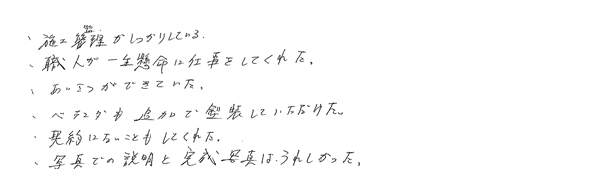 、施工管理がしっかりしている。
、職人が一生懸命に仕事をしてくれた。
、あいさつができていた。
、ベランダも追加で塗装していただけた。
、契約にないこともしてくれた。
、写真での説明と完成写真は、うれしかった。